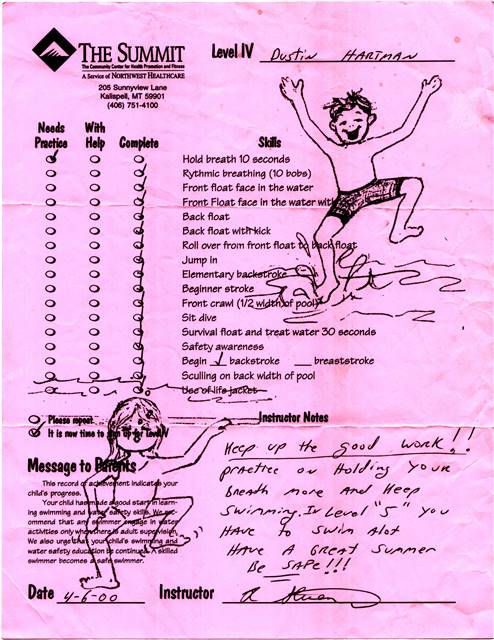 THE SUMMIT
The Community Center for Health Promotion and Fitness
A Service of NORTHWEST HEALTHCARE
205 Sunnyview Lane
Kalispell, MT 59901
(406) 751-4100
Level IV Dustin HARTMAN
Needs Practice With Help Complete Skills
Hold breath 10 seconds
Rythmic breathing (10 bobs)
Front float face in the water
Front Float face in the water with
Back float
Back float with kick
Roll over from front float to back float
Jump in
Elementary backstroke
Beginner stroke
Front crawl (1/2 width of pool)
Sit dive
Survival float and treat water 30 seconds
Safety awareness
Begin ✓ backstroke ___ breaststroke
Sculling on back width of pool
Use of life jacket
Please repeat
It is now time to sign up for Level V
Instructor Notes
Keep up the good work!!
practice on Holding your
Breath more and Keep
Swimming. In Level "5" you
HAVE to Swim Alot
HAVE A GREAT Summer
Be SAFE!!!
Message to Parents
This record of achievement indicates your
child's progress.
Your child has made a good start in learn-
ing swimming and water safety skills. We rec-
ommend that any swimmer engage in water
activities only when there is adult supervision.
We also urge that your child's swimming and
water safety education be continued. A skilled
swimmer becomes a safe swimmer.
Date 4-6-00 Instructor